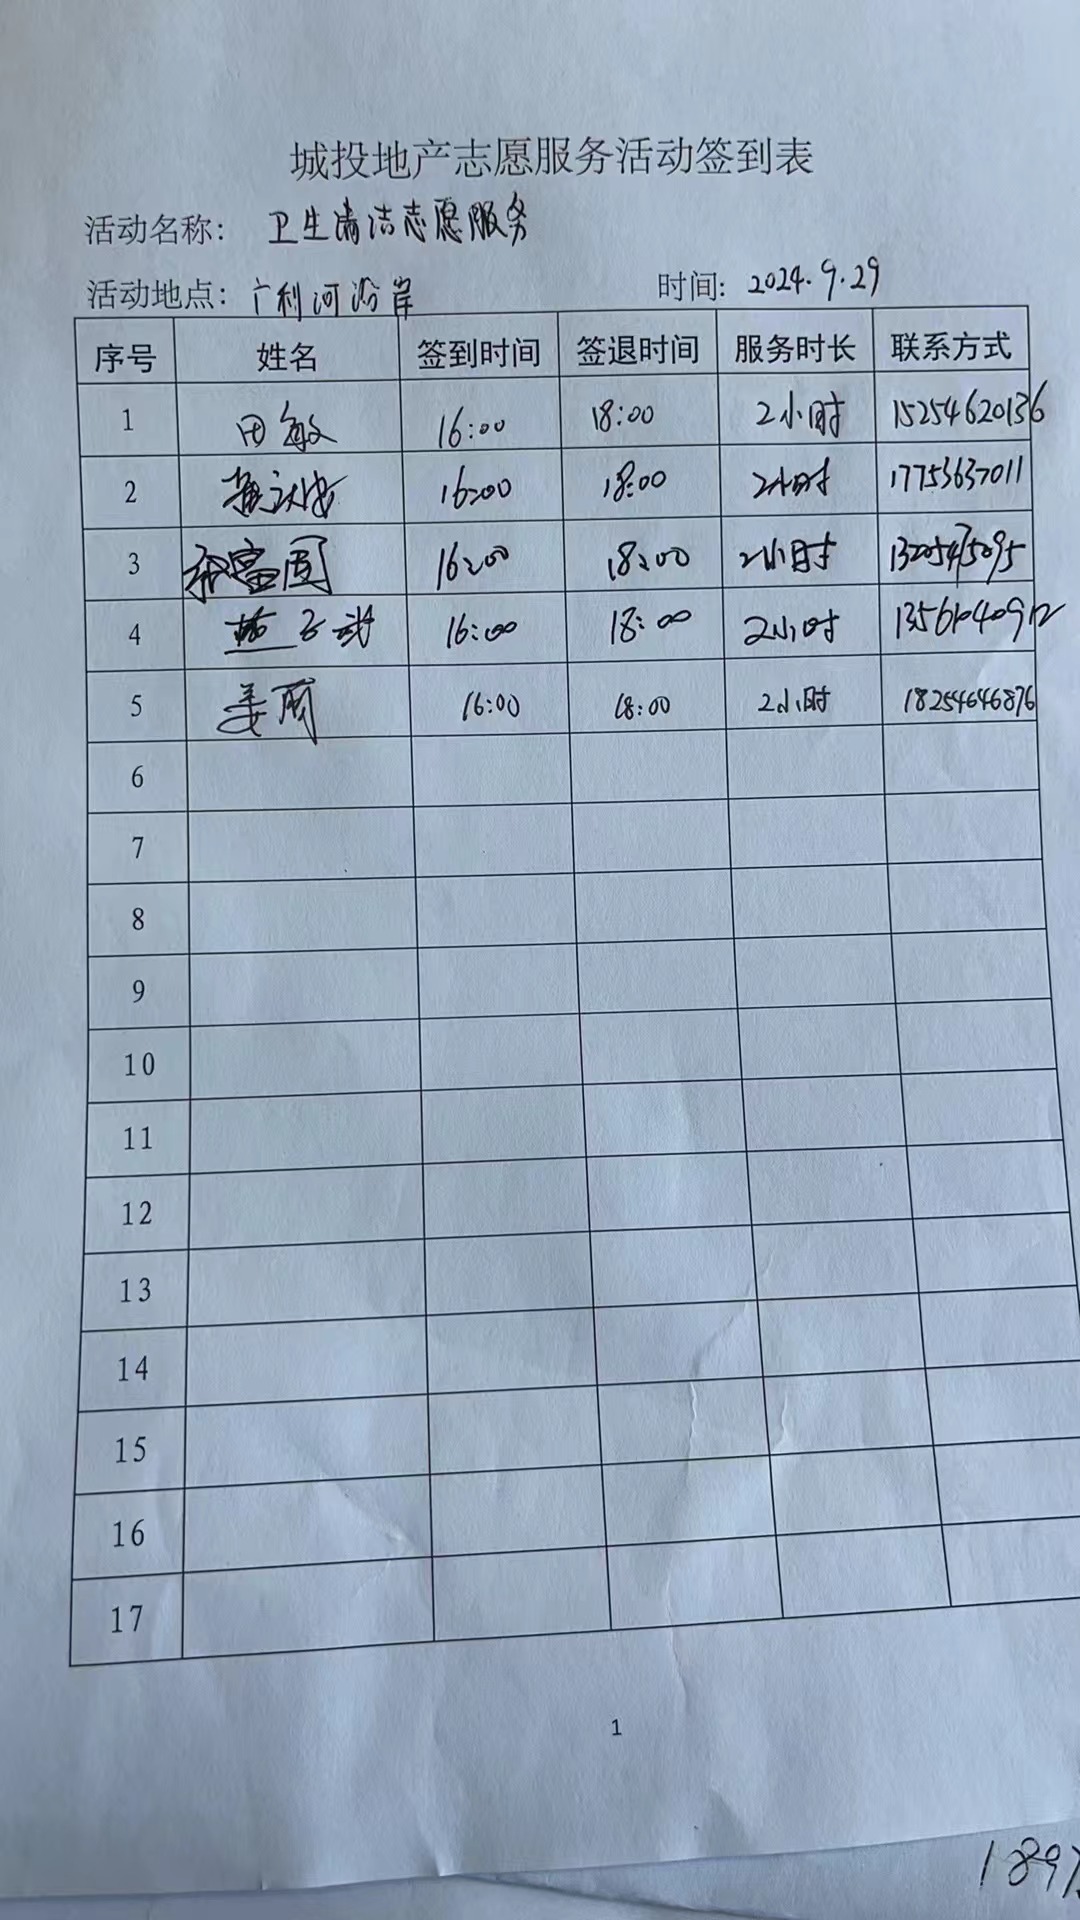 城投地产志愿服务活动签到表
活动名称: 卫生清洁志愿服务
活动地点: 广利河沿岸 时间: 2024.9.29
序号 姓名 签到时间 签退时间 服务时长 联系方式
1 田敏 16:00 18:00 2小时 15254620136
2 16:00 18:00 2小时 17753637011
3 16:00 18:00 2小时 13205475095
4 16:00 18:00 2小时
5 姜丽 16:00 18:00 2小时 18254646876
6
7
8
9
10
11
12
13
14
15
16
17
1